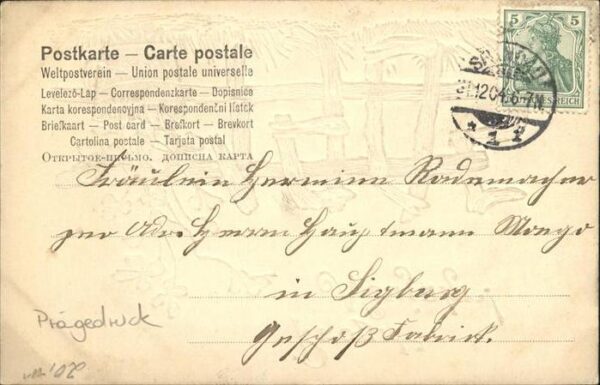 Postkarte — Carte postale
Weltpostverein — Union postale universelle
Levelező-Lap — Correspondenzkarte — Dopisnice
Karta korespondencyjna — Korespondenční lístek
Briefkaart — Post card — Brefkort — Brevkort
Cartolina postale — Tarjeta postal
Открытое-письмо. дописна карта
5 5
REICH
12 04 6-7N
1 i
Fräulein Hermine Rademacher
per Adr. Herrn Hauptmann Mongo
in Sigburg
Geschoß Fabrick.
Prägedruck